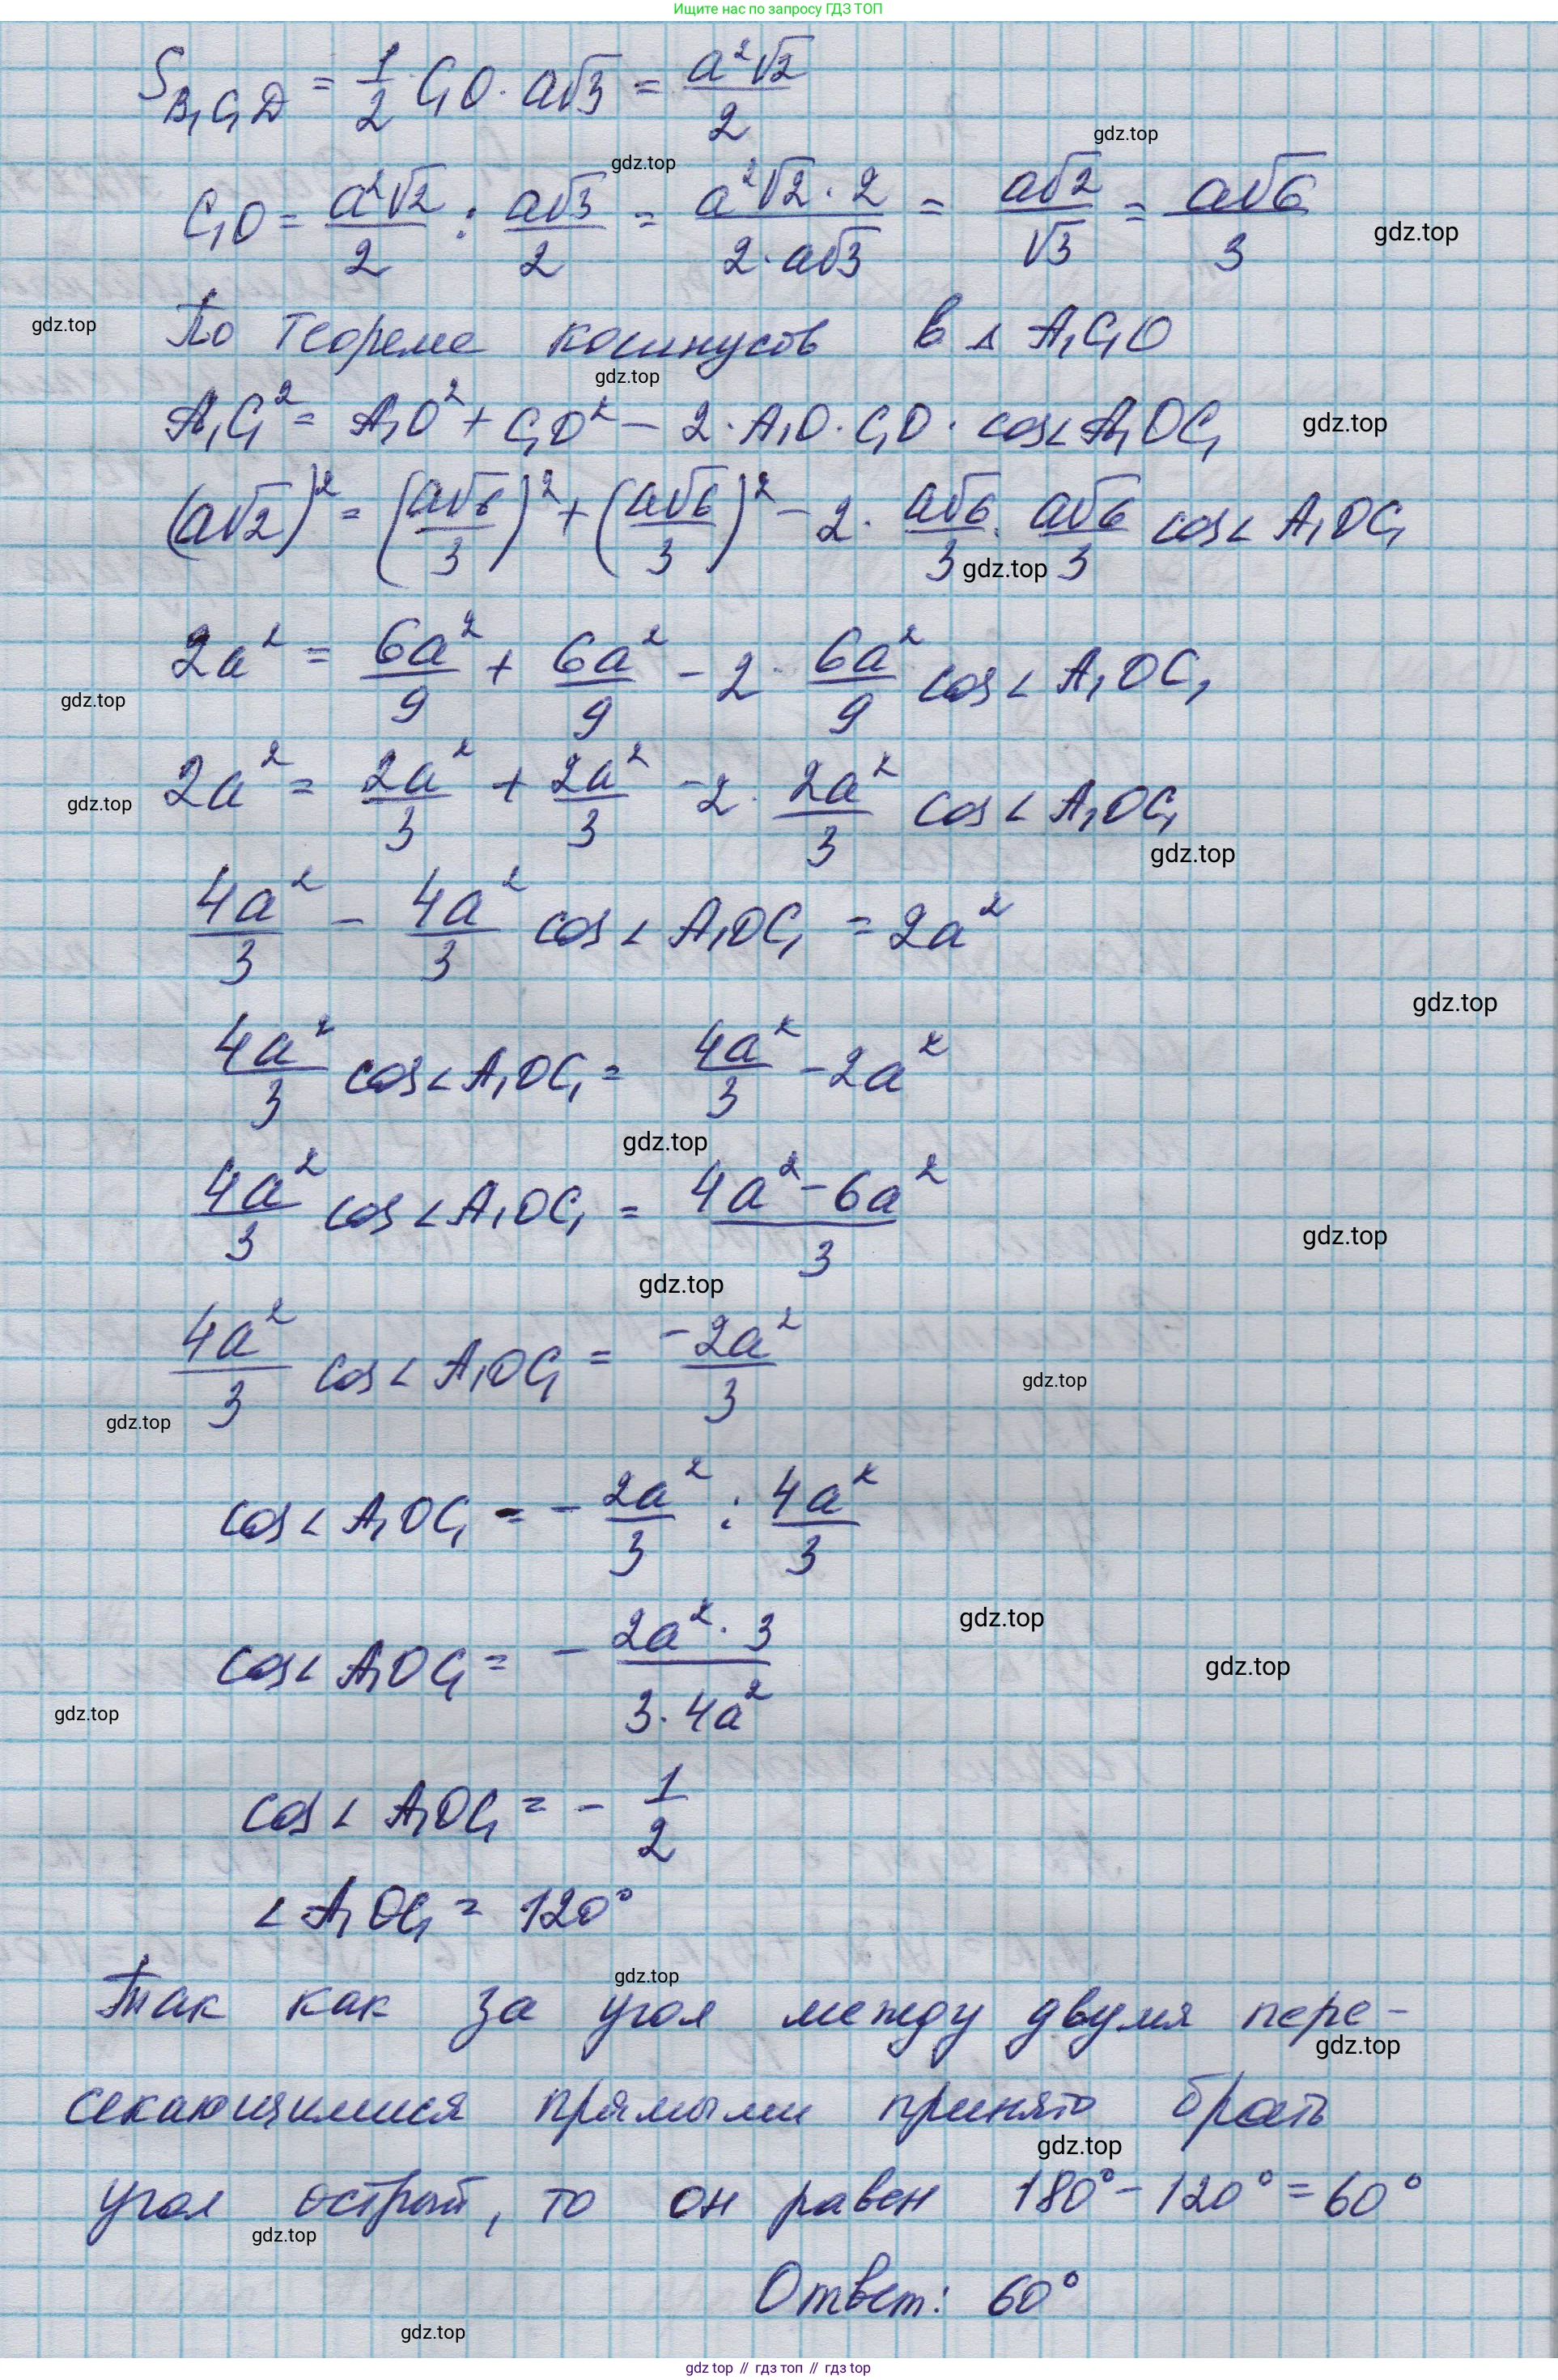 Ищите нас по запросу ГДЗ ТОП
S_{B₁C₁D} = 1/2 C₁O · a√3 = a²√2/2
gdz.top
gdz.top
C₁O = a²√2/2 : a√3/2 = a²√2 · 2/2 · a√3 = a√2/√3 = a√6/3
gdz.top
gdz.top
По теореме косинусов в △ A₁C₁O
gdz.top
A₁C₁² = A₁O² + C₁O² − 2 · A₁O · C₁O · cos∠A₁OC₁
gdz.top
(a√2)² = (a√6/3)² + (a√6/3)² − 2 · a√6/3 · a√6/3 cos∠A₁OC₁
gdz.top
2a² = 6a²/9 + 6a²/9 − 2 · 6a²/9 cos∠A₁OC₁
gdz.top
2a² = 2a²/3 + 2a²/3 − 2 · 2a²/3 cos∠A₁OC₁
gdz.top
gdz.top
4a²/3 − 4a²/3 cos∠A₁OC₁ = 2a²
gdz.top
4a²/3 cos∠A₁OC₁ = 4a²/3 − 2a²
gdz.top
4a²/3 cos∠A₁OC₁ = 4a² − 6a²/3
gdz.top
gdz.top
4a²/3 cos∠A₁OC₁ = −2a²/3
gdz.top
gdz.top
cos∠A₁OC₁ = − 2a²/3 : 4a²/3
gdz.top
cos∠A₁OC₁ = − 2a² · 3/3 · 4a²
gdz.top
gdz.top
cos∠A₁OC₁ = − 1/2
∠A₁OC₁ = 120°
gdz.top
Так как за угол между двумя пере-
gdz.top
секающимися прямыми принято брать
gdz.top
угол острый, то он равен 180° − 120° = 60°
gdz.top
Ответ: 60°
gdz.top
gdz top // гдз топ // гдз top